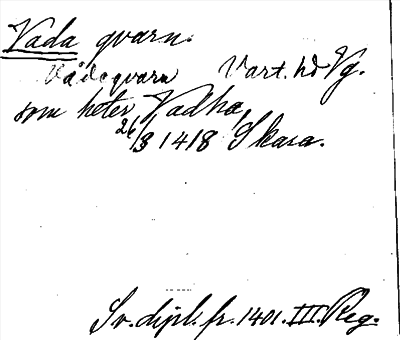 Vada qvarn.
Vådaqvarn Vart. hd Vg.
som heter Vadha,
26/3 1418 Skara.
Sv. dipl. fr. 1401. III. Reg.